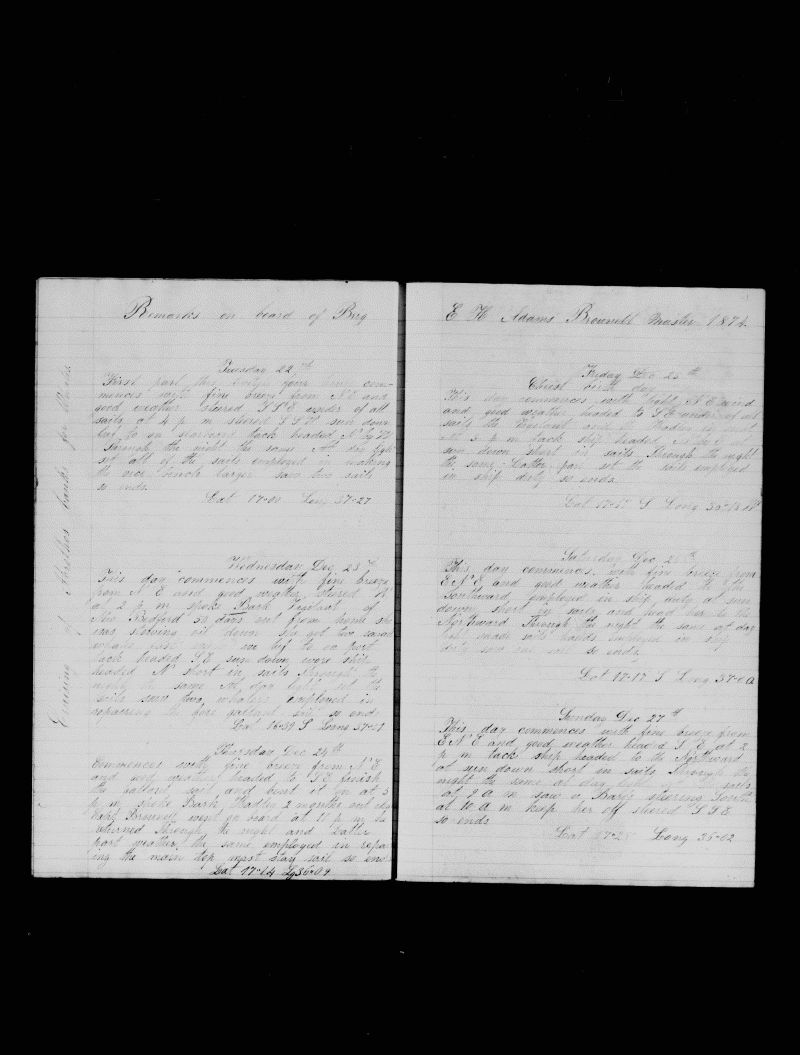 Remarks on board of Brig
Cruising of Abrolhos banks for Whales
Tuesday 22th
First part this com-
mences with fine breeze from N E and
good weather stered S S E under of all
sails at 4 p m stered S S W sun down
luf to on starboard tack headed N by W
Through the night the same At day light
set all of the sails employed in making
the larger saw two sails
so ends
Lat 17-00 Long 37-27
Wednesday Dec 23th
This day commences with fine breeze
from N E and good weather stered W
at 2 p m spoke Bark Vigilant of
New Bedford 50 days out from home she
was stowing oil down She got two
whales last we luf to on port
tack headed S E sun down wore ship
headed N short in sails through the
night the same At day light set the
sails saw two whalers employed in
repairing the fore gallant sail so ends
Lat 16-59 S Long 37-21
Thursday Dec 24th
Commences with fine breeze from N E
and good weather headed to S E finish
the gallant sail and bent it on at 3
p m spoke Bark Hadley 2 months out
Capt Brownell went on board at 11 p m he
returned through the night and latter
part weather the same employed in repair
ing the main top mast stay sail so ends
Lat 17-14 Lg 36-09
E H Adams Brownell Master 1874
Friday Dec 25th
Christ birth day
This day commences with light N E wind
and good weather headed to S E under of all
sails the Vigilant and the Hadley in sight
At 3 p m tack ship headed N by E at
sun down short in sails through the night
the same Latter part set the sails employed
in ship duty so ends
Lat 17-17 S Long 36-18 W
Saturday Dec 26th
This day commences with fine breeze from
E N E and good weather headed to the
Southward employed in ship duty at sun
down short in sails and head her to the
Northward Through the night the same at day
light made sails hands employed on ship
duty saw one sail so ends
Lat 17-17 S Long 37-00
Sunday Dec 27th
This day commences with fine breeze from
E N E and good weather headed S E at 2
p m tack ship headed to the Northward
at sun down short in sails through the
night the same at day light sails
at 9 A m saw a Bark steering South
at 10 A m keep her off stered S S E
so ends
Lat 17-28 Long 36-02